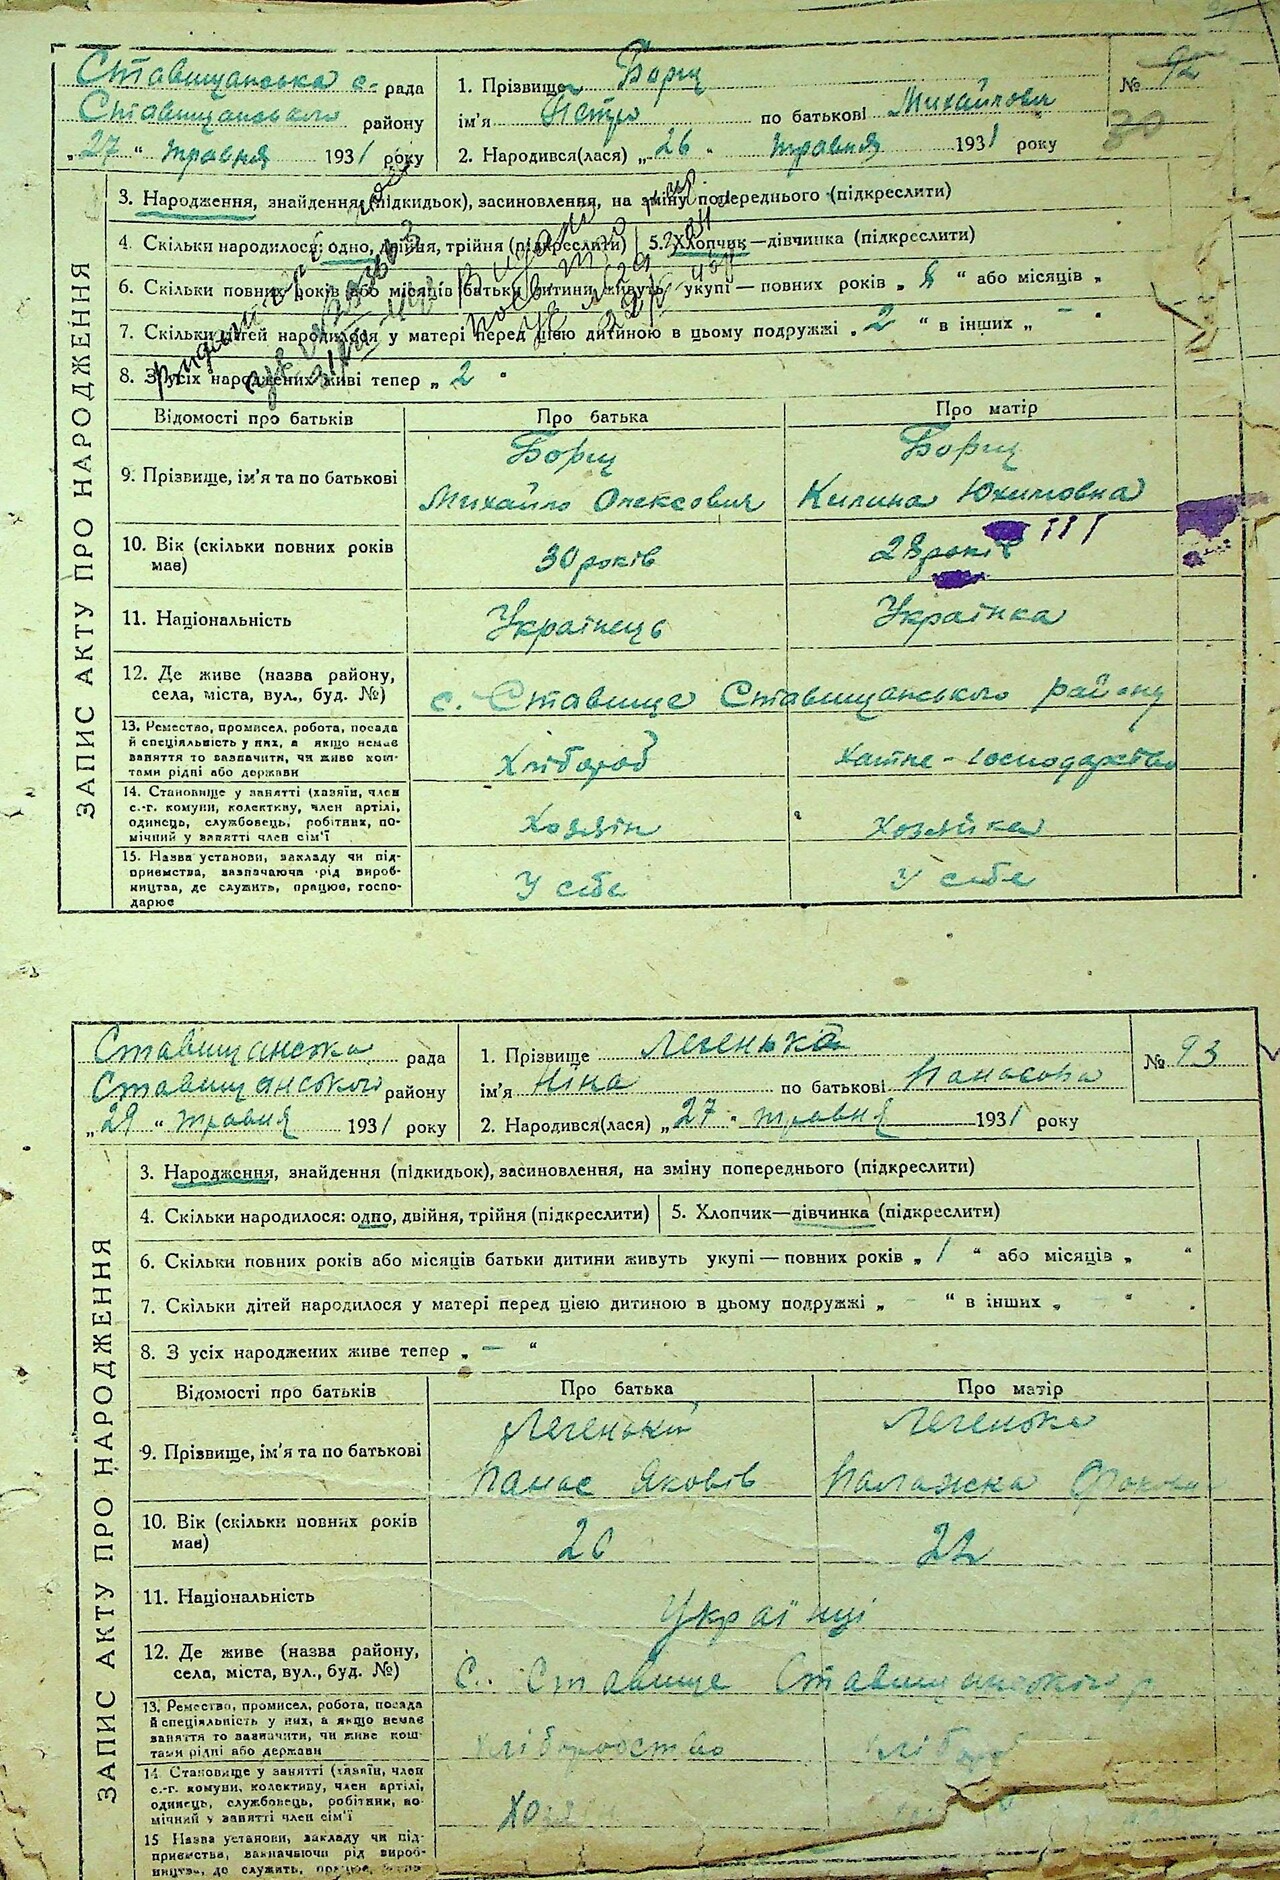 Ставищанська с. рада
Ставищанського району
„27" травня 1931 року
1. Прізвище Борщ
ім'я Петро по батькові Михайлович
2. Народився(лася) „26" травня 1931 року
№ 92
30
ЗАПИС АКТУ ПРО НАРОДЖЕННЯ
3. Народження, знайдення (підкидьок), засиновлення, на зміну попереднього (підкреслити)
4. Скільки народилося: одно, двійня, трійня (підкреслити) 5. Хлопчик—дівчинка (підкреслити)
6. Скільки повних років або місяців батьки дитини живуть укупі — повних років „8" або місяців „
7. Скільки дітей народилося у матері перед цією дитиною в цьому подружжі „2" в інших „—"
8. З усіх народжених живі тепер „2"
Відомості про батьків Про батька Про матір
9. Прізвище, ім'я та по батькові
Борщ Борщ
Михайло Олексович Килина Юхимовна
10. Вік (скільки повних років
має)
30 років 28 років
11. Національність Українець Українка
12. Де живе (назва району,
села, міста, вул., буд. №)
с. Ставище Ставищанського району
13. Ремество, промисел, робота, посада
й спеціяльність у них, а якщо немає
заняття то зазначити, чи живе кош-
тами рідні або держави
Хлібороб Хатне-господарство
14. Становище у занятті (хазяїн, член
с.-г. комуни, колективу, член артілі,
одинець, службовець, робітник, по-
мічний у занятті член сім'ї
Хозяїн Хозяйка
15. Назва установи, закладу чи під-
приємства, зазначаючи рід вироб-
ництва, де служить, працює, госпо-
дарює
У себе У себе
Ставищанська рада
Ставищанського району
„29" травня 1931 року
1. Прізвище Легенька
ім'я Ніна по батькові Панасова
2. Народився(лася) „27" травня 1931 року
№ 93
ЗАПИС АКТУ ПРО НАРОДЖЕННЯ
3. Народження, знайдення (підкидьок), засиновлення, на зміну попереднього (підкреслити)
4. Скільки народилося: одно, двійня, трійня (підкреслити) 5. Хлопчик—дівчинка (підкреслити)
6. Скільки повних років або місяців батьки дитини живуть укупі — повних років „1" або місяців „ "
7. Скільки дітей народилося у матері перед цією дитиною в цьому подружжі „—" в інших „—"
8. З усіх народжених живе тепер „—"
Відомості про батьків Про батька Про матір
9. Прізвище, ім'я та по батькові
Легенький Легенька
Панас Яковів Палажка
10. Вік (скільки повних років
має)
20 22
11. Національність Українці
12. Де живе (назва району,
села, міста, вул., буд. №)
С. Ставище Ставищанського р
13. Ремество, промисел, робота, посада
й спеціяльність у них, а якщо немає
заняття то зазначити, чи живе кош-
тами рідні або держави
хліборобство хлібороб
14. Становище у занятті (хазяїн, член
с.-г. комуни, колективу, член артілі,
одинець, службовець, робітник, по-
мічний у занятті член сім'ї
Хозяїн
15 Назва установи, закладу чи під-
приємства, зазначаючи рід вироб-
ництва, де служить, працює, госпо-